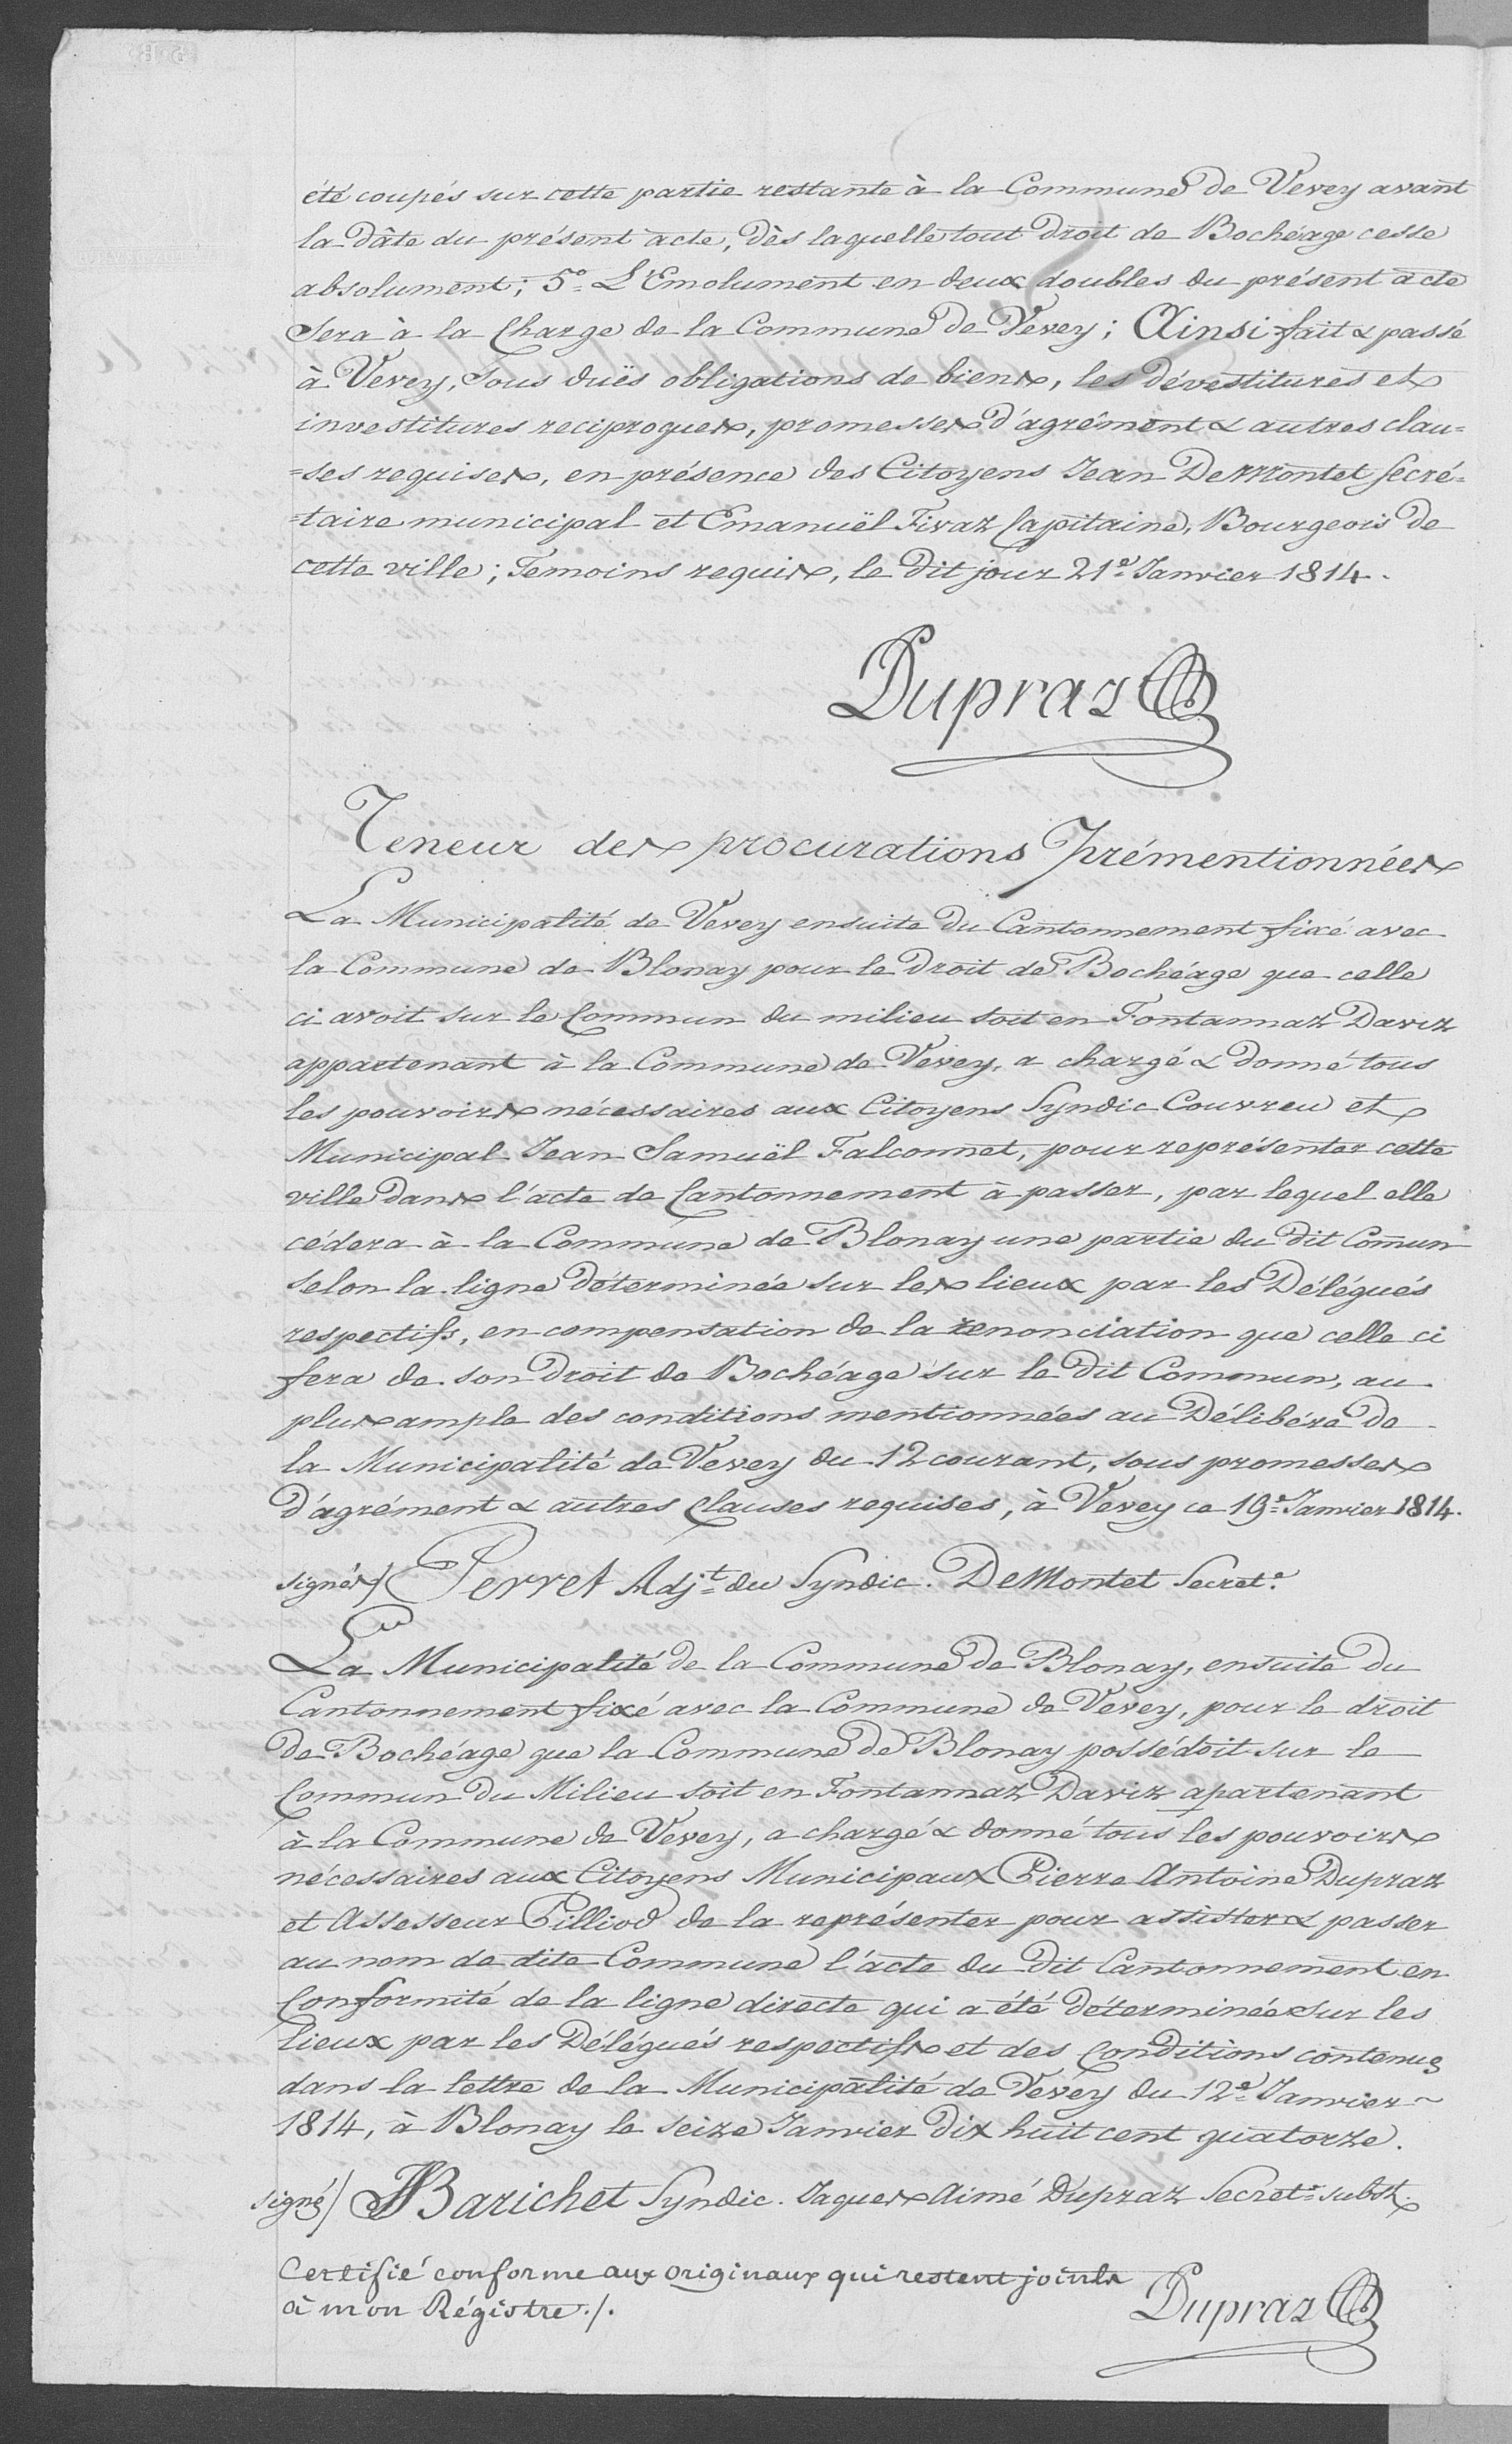 été coupés sur cette partie restante à la Commune de Vevey avant
la dâte du présent acte, dès laquelle tout Droit de Bochéage cesse
absolument; 5° L'Emolument en deux doubles du présent acte
Sera à la Charge de la Commune de Vevey; Ainsi fait & passé
à Vevey, Sous duës obligations de biens, les dévestitures et
investitures reciproques, promesses d'agrément & autres clau=
=ses requises, en présence des Citoyens Jean DeMontet Secré=
=taire municipal et Emanuël Fivaz Capitaine, Bourgeois de
cette ville; Temoins requis, le dit jour 21e Janvier 1814.
Dupraz
Teneur des procurations Prémentionnées
La Municipalité de Vevey ensuite du Cantonnement fixé avec
la Commune de Blonay pour le Droit de Bochéage que celle
ci avoit sur le Commun du milieu soit en Fontannaz Daviz
appartenant à la Commune de Vevey, a chargé & donné tous
les pouvoirs nécessaires aux Citoyens Syndic Couvreu et
Municipal Jean Samuël Falconnet, pour représenter cette
ville dans l'acte de Cantonnement à passer, par lequel elle
cédera à la Commune de Blonay une partie du dit Comun
selon la ligne déterminée sur les lieux par les Délégués
respectifs, en compensation de la renonciation que celle ci
fera de son Droit de Bochéage sur le dit Commun, au
plus ample des conditions mentionnées au Délibéré de
la Municipalité de Vevey du 12 courant, sous promesses
d'agrément & autres clauses requises, à Vevey ce 19e Janvier 1814.
signés/ Perret Adjt du Syndic. DeMontet Secret.e
La Municipalité de la Commune de Blonay, ensuite du
Cantonnement fixé avec la Commune de Vevey, pour le droit
de Bochéage que la Commune de Blonay possédoit sur le
Commun du Milieu soit en Fontannaz Daviz apartenant
à la Commune de Vevey, a chargé & donné tous les pouvoirs
nécessaires aux Citoyens Municipaux Pierre Antoine Dupraz
et Assesseur Pilliod de la représenter pour assister & passer
au nom de dite Commune l'acte du dit Cantonnement en
Conformité de la ligne directe qui a été déterminée sur les
lieux par les Délégués respectifs et des Conditions contenues
dans la lettre de la Municipalité de Vevey du 12e Janvier ~
1814, à Blonay le seize Janvier dix huit cent quatorze.
signé/ Barichet Syndic. Jaques Aimé Dupraz Secret.e subst.
Certifié conforme aux originaux qui restent joints
à mon Régistre ./.
Dupraz